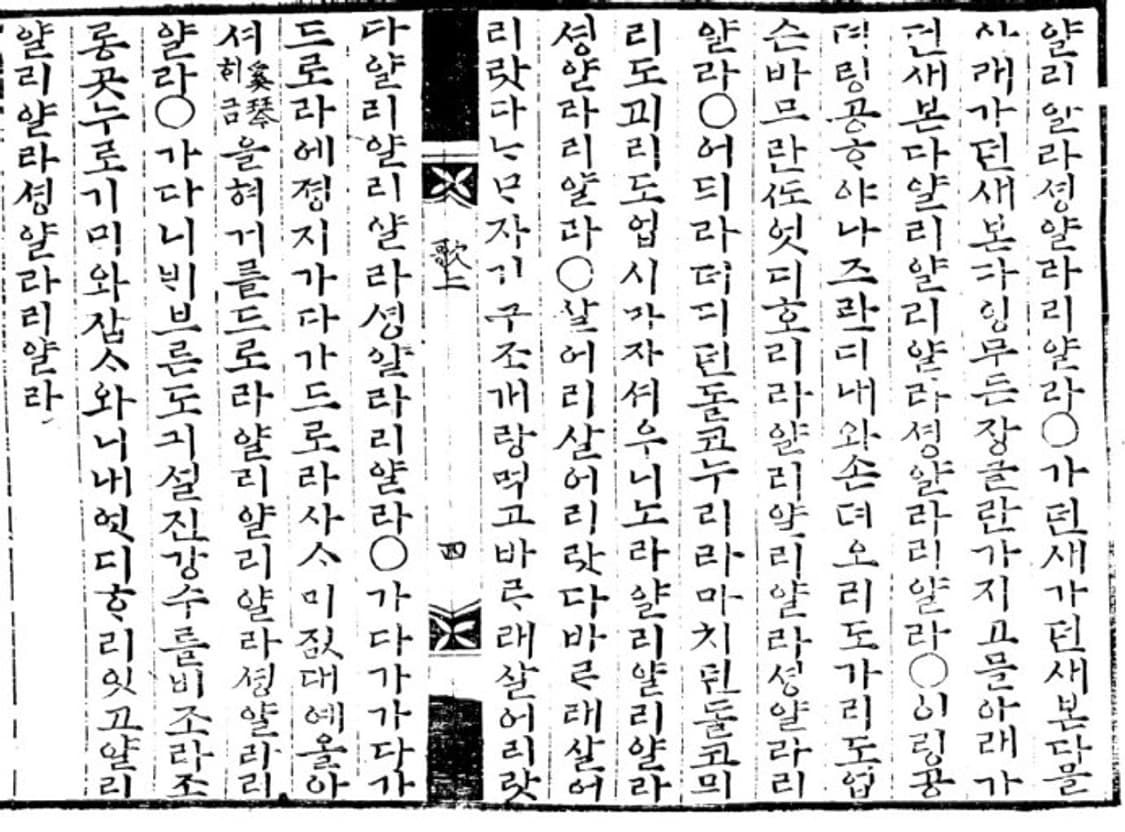 얄리얄라셩얄라리얄라○가던새가던새본다믈
아래가던새본다잉무든장글란가지고믈아래가
던새본다얄리얄리얄라셩얄라리얄라○이링공
뎌링공ᄒᆞ야나즈란디내와손뎌오리도가리도업
슨바므란ᄯᅩ엇디호리라얄리얄리얄라셩얄라리
얄라○어듸라더디던돌코누리라마치던돌코믜
리도괴리도업시마자셔우니노라얄리얄리얄라
셩얄라리얄라○살어리살어리랏다바ᄅᆞ래살어
리랏다ᄂᆞᄆᆞ자기구조개랑먹고바ᄅᆞ래살어리랏
歌上 四
다얄리얄리얄라셩얄라리얄라○가다가가다가
드로라에졍지가다가드로라사ᄉᆞ미짒대예올아
셔奚琴히금을혀거를드로라얄리얄리얄라셩얄라리
얄라○가다니ᄇᆡ브른도긔설진강수를비조라조
롱곳누로기ᄆᆡ와잡ᄉᆞ와니내엇디ᄒᆞ리잇고얄리
얄리얄라셩얄라리얄라